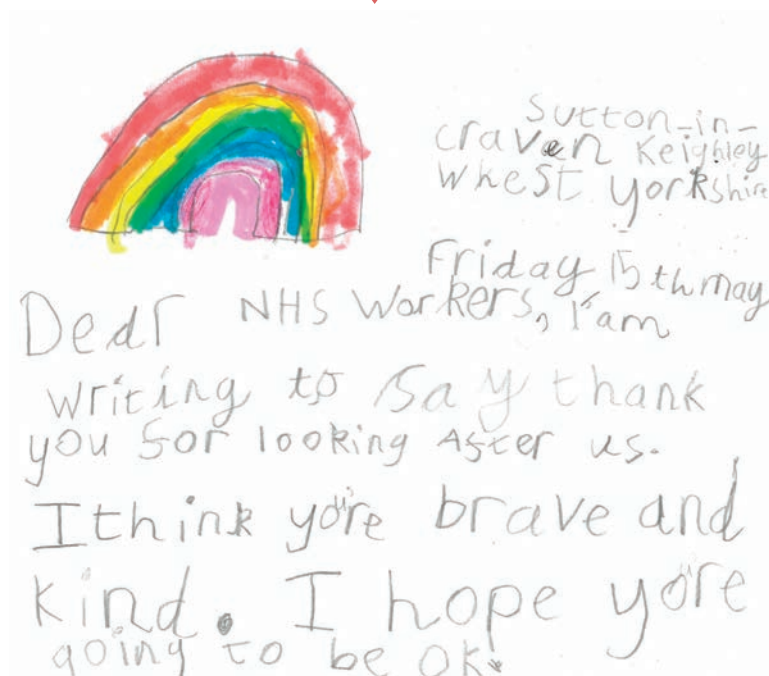 Sutton-in-
craven Keighley
Whest yorkshire
Friday 15th may
Dear NHS Workers, I'am
writing to say thank
you for looking After us.
I think yo're brave and
kind. I hope yo're
going to be ok.